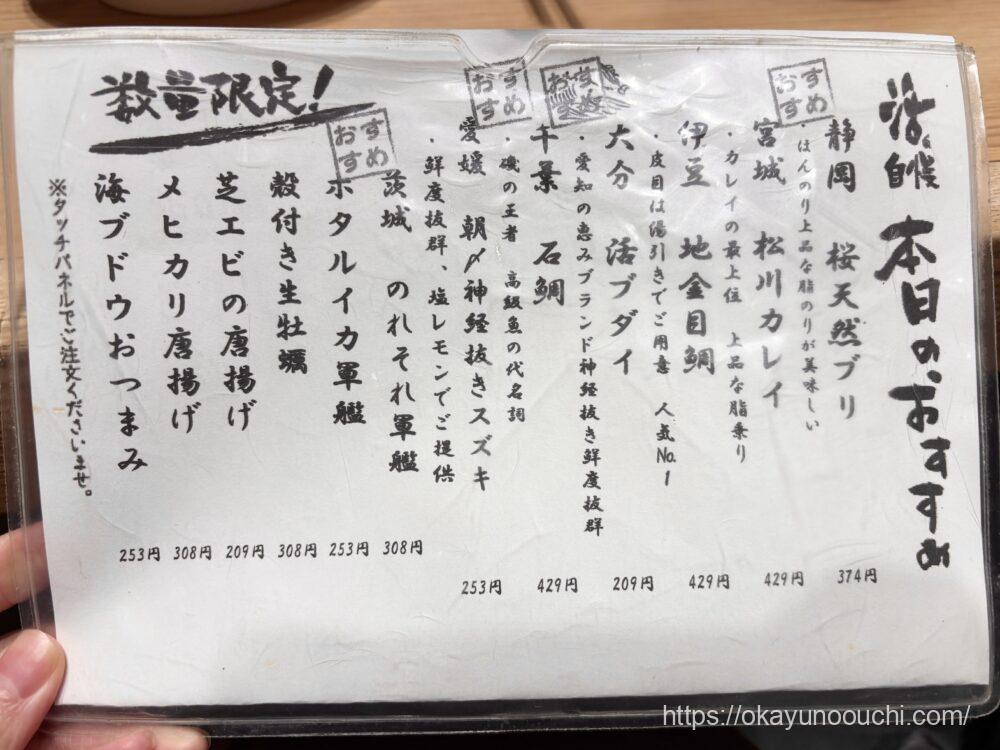 活〆自慢 本日のおすすめ
おすすめ
静岡 桜天然ブリ 374円
・ほんのり上品な脂のりが美味しい
宮城 松川カレイ 429円
・カレイの最上位 上品な脂乗り
伊豆 地金目鯛 429円
・皮目は湯引きでご用意 人気No.1
大分 活ブダイ 209円
・愛知の恵みブランド神経抜き鮮度抜群
おすすめ
千葉 石鯛 429円
・磯の王者 高級魚の代名詞
おすすめ
愛媛 朝〆神経抜きスズキ 253円
・鮮度抜群、塩レモンでご提供
数量限定!
茨城 のれそれ軍艦 308円
おすすめ
ホタルイカ軍艦 253円
殻付き生牡蠣 308円
芝エビの唐揚げ 209円
メヒカリ唐揚げ 308円
海ブドウおつまみ 253円
※タッチパネルでご注文くださいませ。
https://okayunoouchi.com/